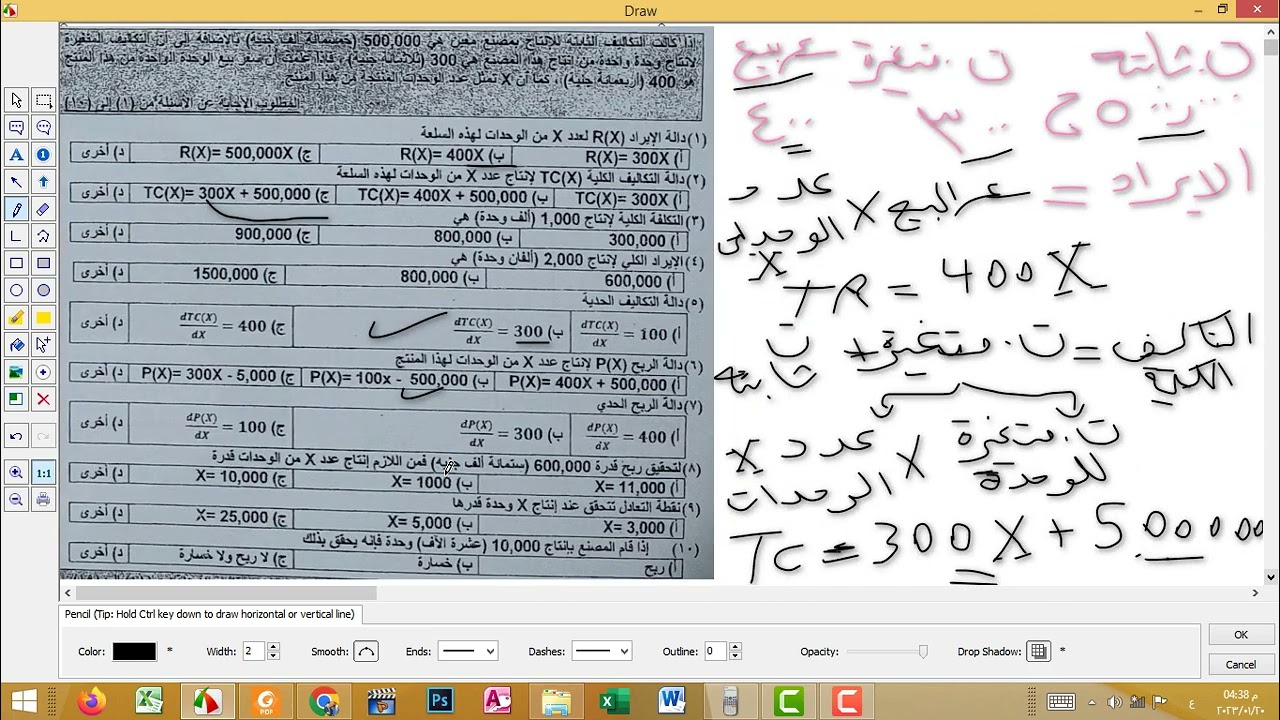 Draw
إذا كانت التكاليف الثابتة للإنتاج بمصنع معين هي 500,000 (خمسمائة ألف جنيه) بالإضافة إلى أن التكاليف المتغيرة
لإنتاج وحدة واحدة من إنتاج هذا المصنع هي 300 (ثلاثمائة جنيه) ، فإذا علمت أن سعر بيع الوحدة الواحدة من هذا المنتج
هو 400 (أربعمائة جنيه) ، كما أن X تمثل عدد الوحدات المنتجة من هذا المنتج
المطلوب الإجابة عن الأسئلة من (١) إلى (١٠)
(١) دالة الإيراد R(X) لعدد X من الوحدات لهذه السلعة
أ) R(X)= 300X ب) R(X)= 400X ج) R(X)= 500,000X د) أخرى
(٢) دالة التكاليف الكلية TC(X) لإنتاج عدد X من الوحدات لهذه السلعة
أ) TC(X)= 300X ب) TC(X)= 400X + 500,000 ج) TC(X)= 300X + 500,000 د) أخرى
(٣) التكلفة الكلية لإنتاج 1,000 (ألف وحدة) هي
أ) 300,000 ب) 800,000 ج) 900,000 د) أخرى
(٤) الإيراد الكلي لإنتاج 2,000 (ألفان وحدة) هي
أ) 600,000 ب) 800,000 ج) 1500,000 د) أخرى
(٥) دالة التكاليف الحدية
أ) dTC(X)/dX = 100 ب) dTC(X)/dX = 300 ج) dTC(X)/dX = 400 د) أخرى
(٦) دالة الربح P(X) لإنتاج عدد X من الوحدات لهذا المنتج
أ) P(X)= 400X + 500,000 ب) P(X)= 100x - 500,000 ج) P(X)= 300X - 5,000 د) أخرى
(٧) دالة الربح الحدي
أ) dP(X)/dX = 400 ب) dP(X)/dX = 300 ج) dP(X)/dX = 100 د) أخرى
(٨) لتحقيق ربح قدرة 600,000 (ستمائة ألف جنيه) فمن اللازم إنتاج عدد X من الوحدات قدرة
أ) X= 11,000 ب) X= 1000 ج) X= 10,000 د) أخرى
(٩) نقطة التعادل تتحقق عند إنتاج X وحدة قدرها
أ) X= 3,000 ب) X= 5,000 ج) X= 25,000 د) أخرى
(١٠) إذا قام المصنع بإنتاج 10,000 (عشرة الآف) وحدة فإنه يحقق بذلك
أ) ربح ب) خسارة ج) لا ربح ولا خسارة د) أخرى
ت. ثابته ت. متغيرة
٣٠٠ ٤٠٠
الايراد = سعر البيع X عدد الوحدات
X
TR = 400 X
التكاليف الكلية = ت. متغيرة + ت ثابته
ت. متغيرة للوحدة X عدد الوحدات X
TC = 300 X + 500000
Pencil (Tip: Hold Ctrl key down to draw horizontal or vertical line)
Color: * Width: 2 Smooth: Ends: Dashes: Outline: 0 Opacity: Drop Shadow: *
OK
Cancel
1:1
PDF
Ps
ع
٠٤:٣٨ م
٢٠٢٣/٠١/٢٠